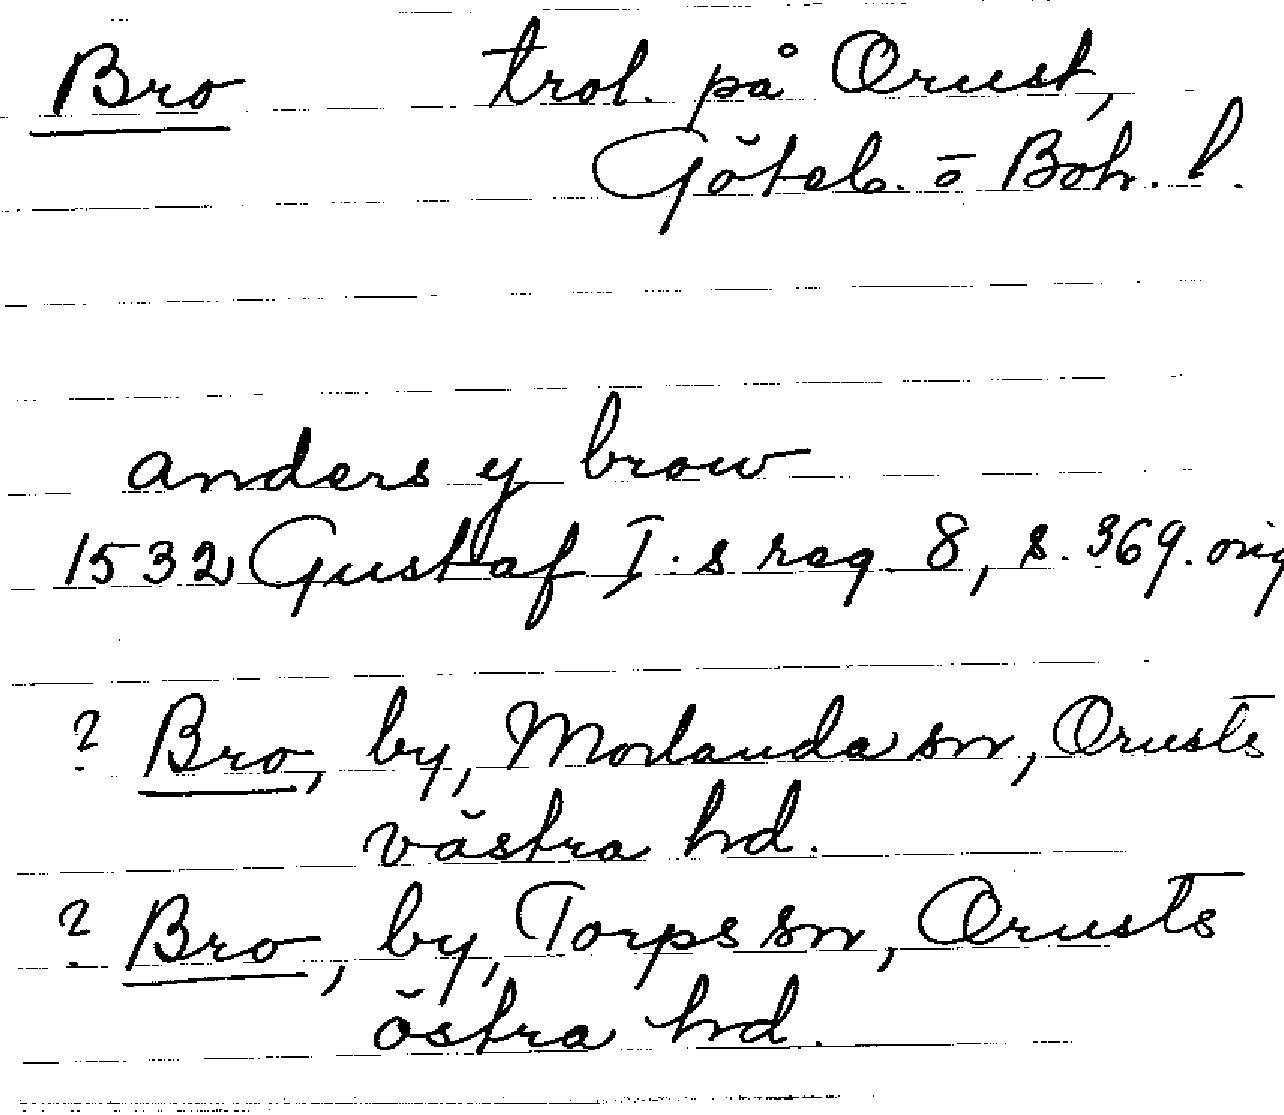 Bro trol. på Orust,
Göteb. o Boh. l.
anders y brow
1532 Gustaf I:s reg 8, s. 369. orig
? Bro, by, Morlanda sn, Orusts
västra hd.
? Bro, by, Torps sn, Orusts
östra hd.